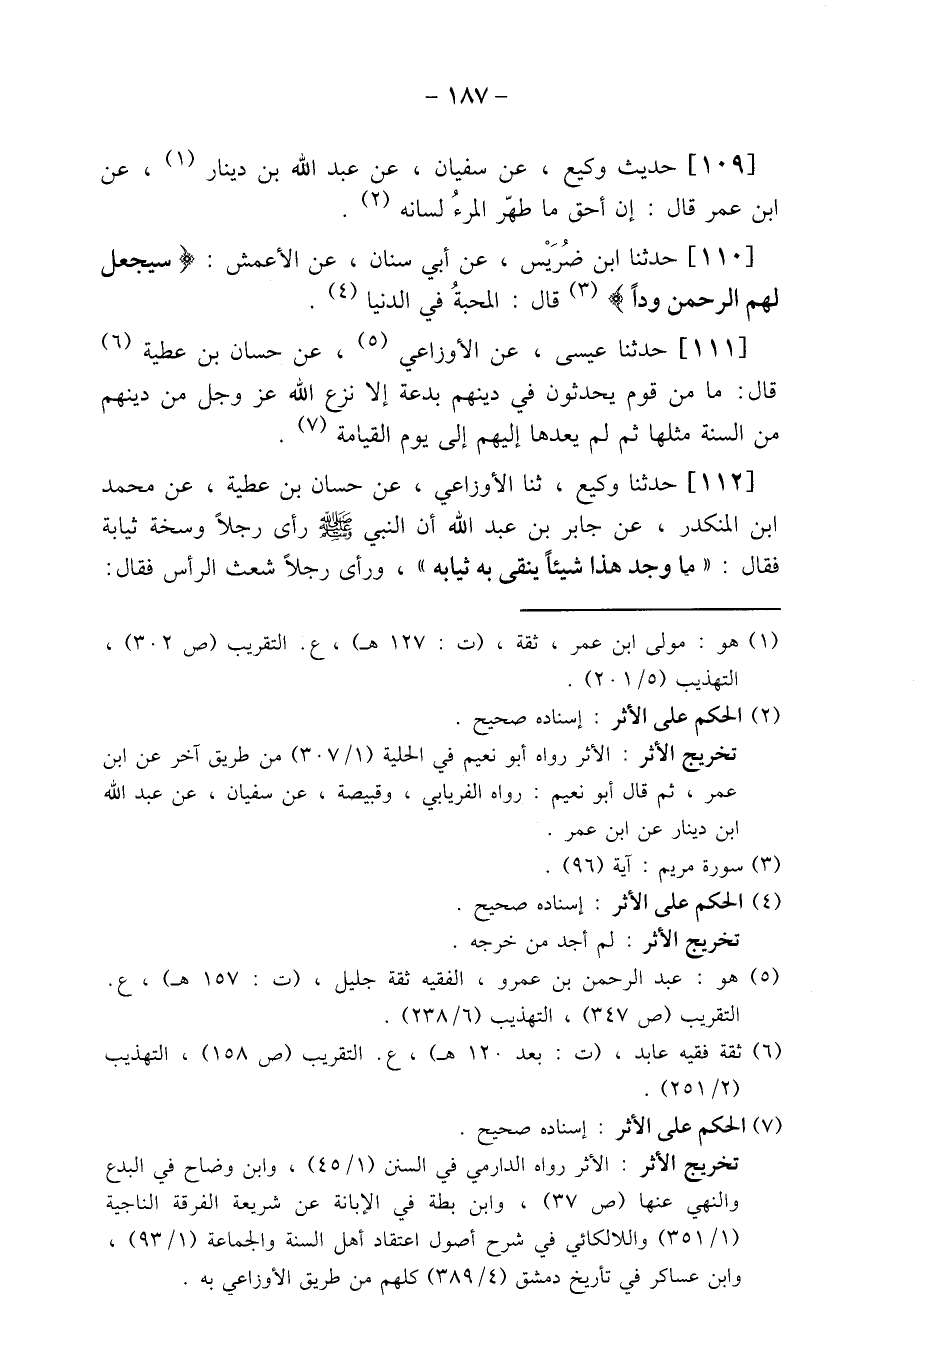 – ١٨٧ –
[١٠٩] حديث وكيع ، عن سفيان ، عن عبد الله بن دينار (١) ، عن
ابن عمر قال : إن أحق ما طهّر المرءُ لسانه (٢) .
[١١٠] حدثنا ابن ضُرَيْس ، عن أبي سنان ، عن الأعمش : ﴿ سيجعل
لهم الرحمن وداً ﴾ (٣) قال : المحبةُ في الدنيا (٤) .
[١١١] حدثنا عيسى ، عن الأوزاعي (٥) ، عن حسان بن عطية (٦)
قال: ما من قوم يحدثون في دينهم بدعة إلا نزع الله عز وجل من دينهم
من السنة مثلها ثم لم يعدها إليهم إلى يوم القيامة (٧) .
[١١٢] حدثنا وكيع ، ثنا الأوزاعي ، عن حسان بن عطية ، عن محمد
ابن المنكدر ، عن جابر بن عبد الله أن النبي ﷺ رأى رجلاً وسخة ثيابة
فقال : « ما وجد هذا شيئاً ينقى به ثيابه » ، ورأى رجلاً شعث الرأس فقال:
(١) هو : مولى ابن عمر ، ثقة ، (ت : ١٢٧ هـ) ، ع. التقريب (ص ٣٠٢) ،
التهذيب (٢٠١/٥) .
(٢) الحكم على الأثر : إسناده صحيح .
تخريج الأثر : الأثر رواه أبو نعيم في الحلية (٣٠٧/١) من طريق آخر عن ابن
عمر ، ثم قال أبو نعيم : رواه الفريابي ، وقبيصة ، عن سفيان ، عن عبد الله
ابن دينار عن ابن عمر .
(٣) سورة مريم : آية (٩٦) .
(٤) الحكم على الأثر : إسناده صحيح .
تخريج الأثر : لم أجد من خرجه .
(٥) هو : عبد الرحمن بن عمرو ، الفقيه ثقة جليل ، (ت : ١٥٧ هـ) ، ع.
التقريب (ص ٣٤٧) ، التهذيب (٢٣٨/٦) .
(٦) ثقة فقيه عابد ، (ت : بعد ١٢٠ هـ) ، ع. التقريب (ص ١٥٨) ، التهذيب
(٢٥١/٢) .
(٧) الحكم على الأثر : إسناده صحيح .
تخريج الأثر : الأثر رواه الدارمي في السنن (٤٥/١) ، وابن وضاح في البدع
والنهي عنها (ص ٣٧) ، وابن بطة في الإبانة عن شريعة الفرقة الناجية
(٣٥١/١) واللالكائي في شرح أصول اعتقاد أهل السنة والجماعة (٩٣/١) ،
وابن عساكر في تأريخ دمشق (٣٨٩/٤) كلهم من طريق الأوزاعي به .